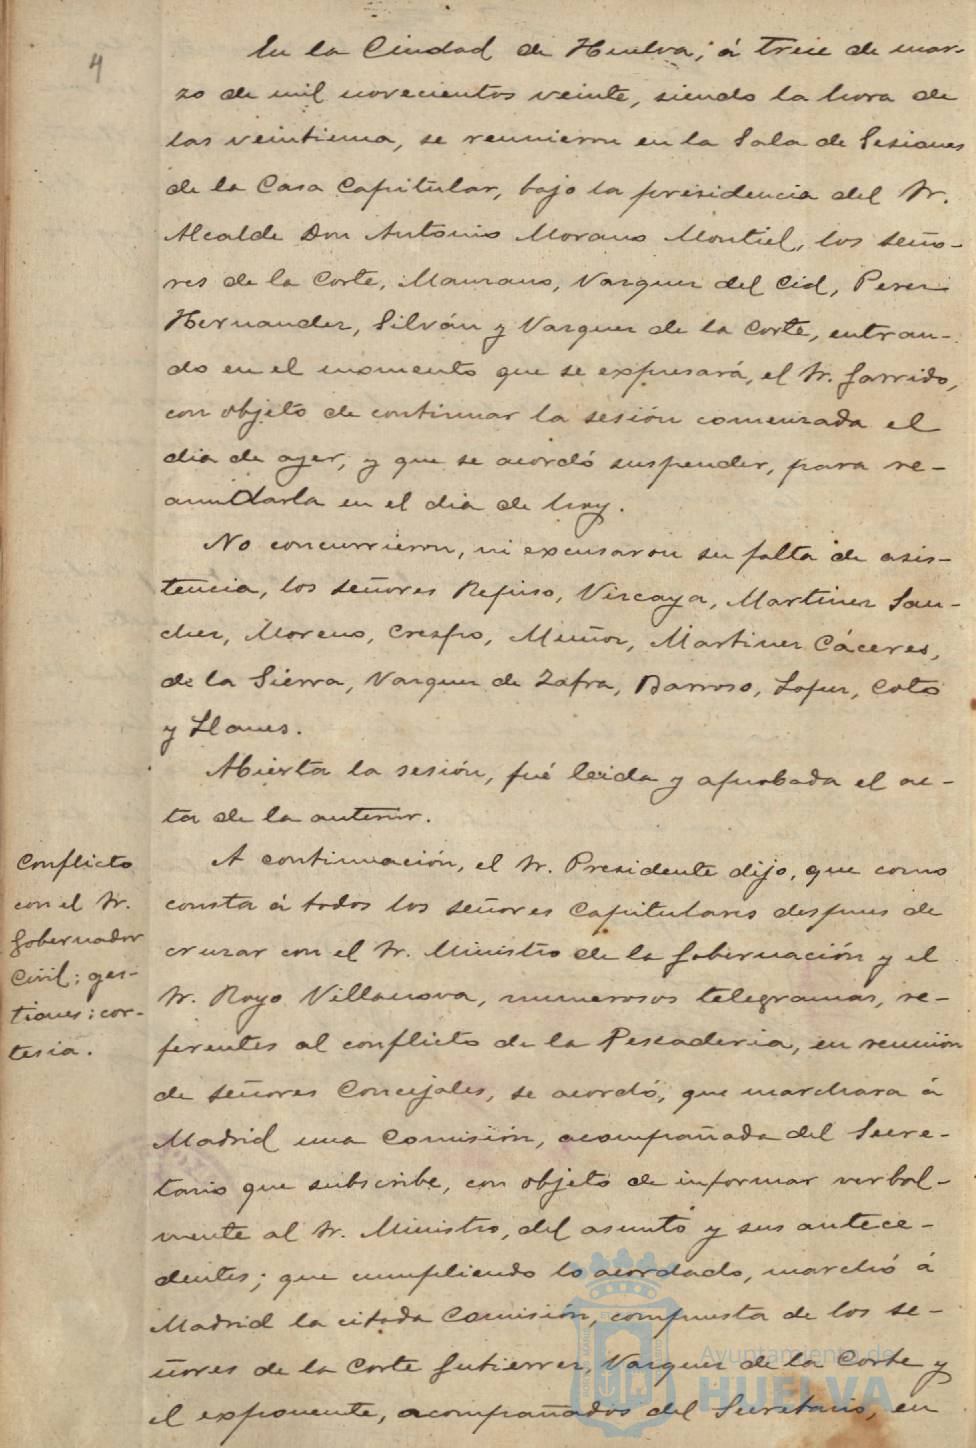 4
En la Ciudad de Huelva; á trece de mar-
zo de mil novecientos veinte, siendo la hora de
las veintiuna, se reunieron en la Sala de Sesiones
de la Casa Capitular, bajo la presidencia del Sr.
Alcalde Don Antonio Morano Montiel, los seño-
res de la Corte, Manzano, Vazquez del Cid, Perez
Hernandez, Silván y Vazquez de la Corte, entran-
do en el momento que se expresará, el Sr. Garrido,
con objeto de continuar la sesión comenzada el
dia de ayer, y que se acordó suspender, para re-
anudarla en el dia de hoy.
No concurrieron, ni excusaron su falta de asis-
tencia, los señores Repiso, Vizcaya, Martinez San-
chez, Moreno, Crespo, Muñoz, Martinez Cáceres,
de la Sierra, Vazquez de Zafra, Barroso, Lopez, Coto
y Llanes.
Abierta la sesión, fué leida y aprobada el ac-
ta de la anterior.
Conflicto
con el Sr.
Gobernador
Civil; ges-
tiones; cor-
tesia.
A continuación, el Sr. Presidente dijo, que como
consta á todos los señores Capitulares despues de
cruzar con el Sr. Ministro de la Gobernación y el
Sr. Royo Villanova, numerosos telegramas, re-
ferentes al conflicto de la Pescaderia, en reunión
de señores Concejales, se acordó, que marchara á
Madrid una Comisión, acompañada del Secre-
tario que subscribe, con objeto de informar verbal-
mente al Sr. Ministro, del asunto y sus antece-
dentes; que cumpliendo lo acordado, marchó á
Madrid la citada Comisión, compuesta de los se-
ñores de la Corte Gutierrez, Vazquez de la Corte y
el exponente, acompañados del Secretario, en
Ayuntamiento de
HUELVA